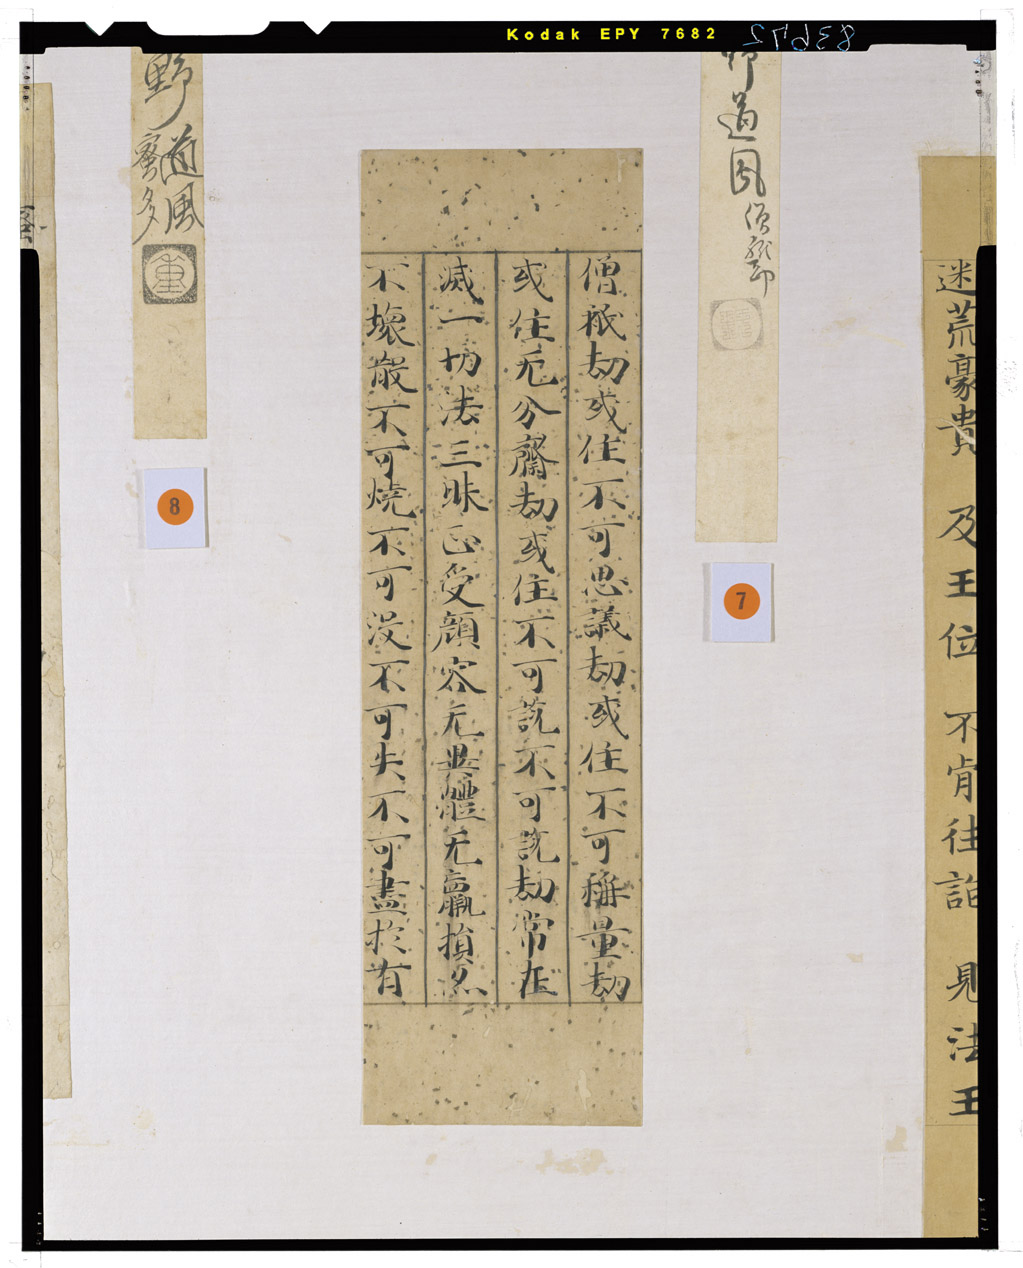 Kodak EPY 7682
83672
迷荒豪貴　及王位　不肯往詣　見法王
野道風
7
僧祇劫或住不可思議劫或住不可稱量劫
或住无分齊劫或住不可説不可説劫常在
滅一切法三昧正受顔容无異體无羸損亦
不壞散不可燒不可没不可失不可盡於有
野道風
蜜多
8